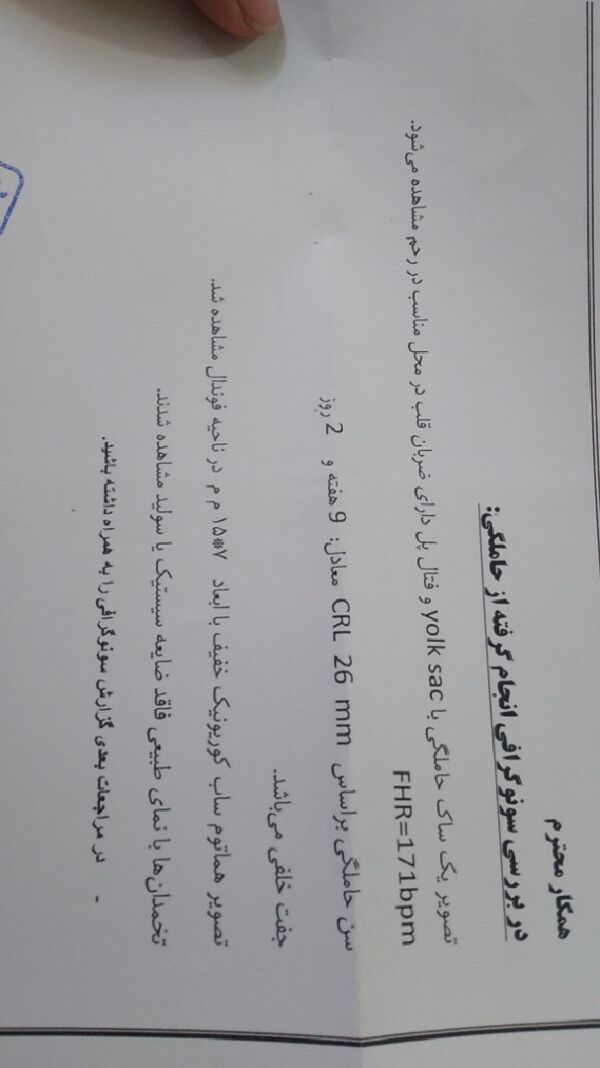 همکار محترم
در بررسی سونوگرافی انجام گرفته از حاملگی:
تصویر یک ساک حاملگی با yolk sac و فتال پل دارای ضربان قلب در محل مناسب در رحم مشاهده می‌شود.
FHR=171bpm
سن حاملگی براساس CRL 26 mm معادل: 9 هفته و 2 روز
جفت خلفی می‌باشد.
تصویر هماتوم ساب کوریونیک خفیف با ابعاد ۷*۱۵ م م در ناحیه فوندال مشاهده شد.
تخمدان‌ها با نمای طبیعی فاقد ضایعه سیستیک یا سولید مشاهده شدند.
- در مراجعات بعدی گزارش سونوگرافی را به همراه داشته باشید.